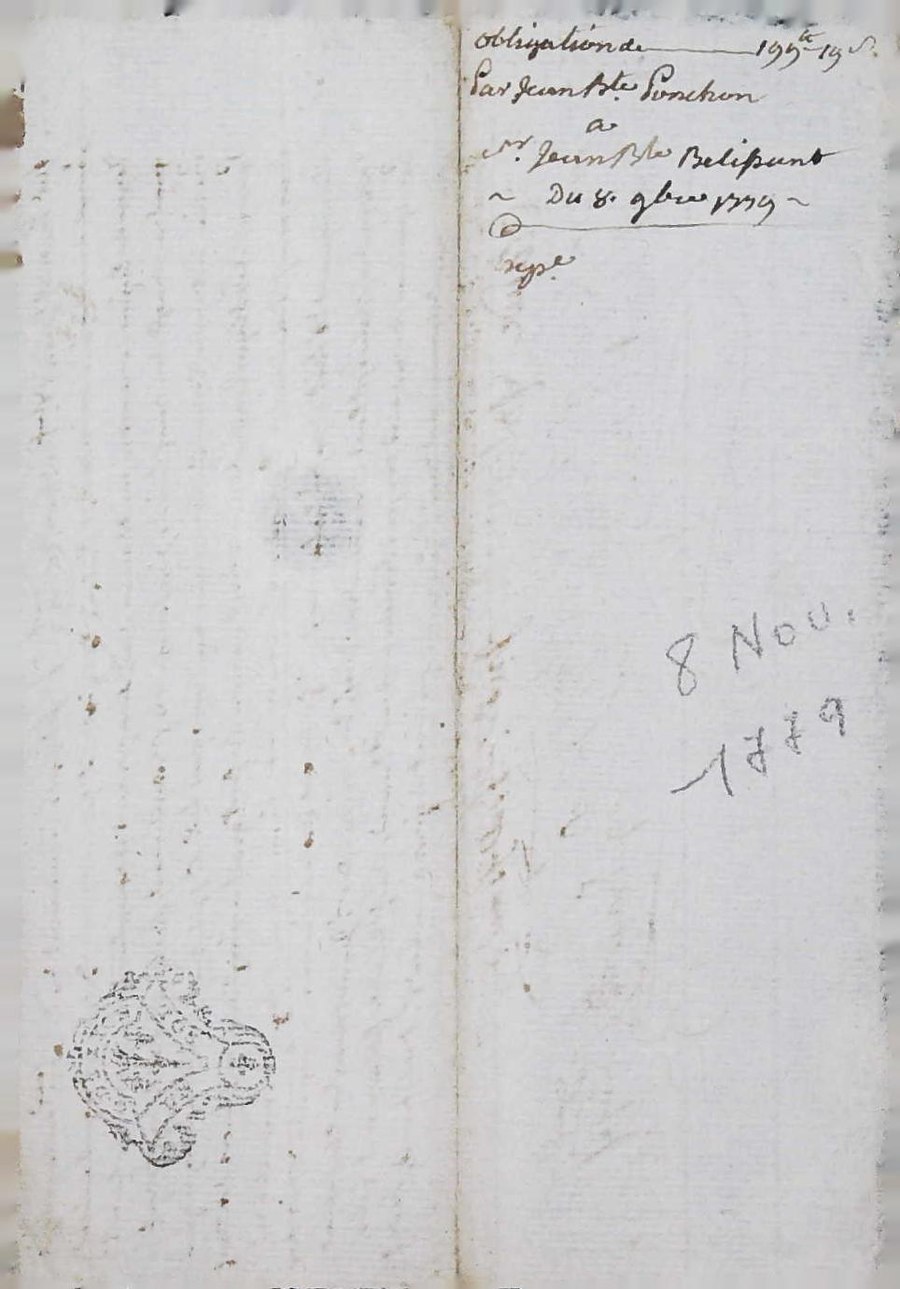 obligation de 199tt 19 s.
Par Jean Bte. Ponchon
a
Sr. Jean Bte Belissant
~ Du 8. 9bre 1779 ~
8 Nov.
1779